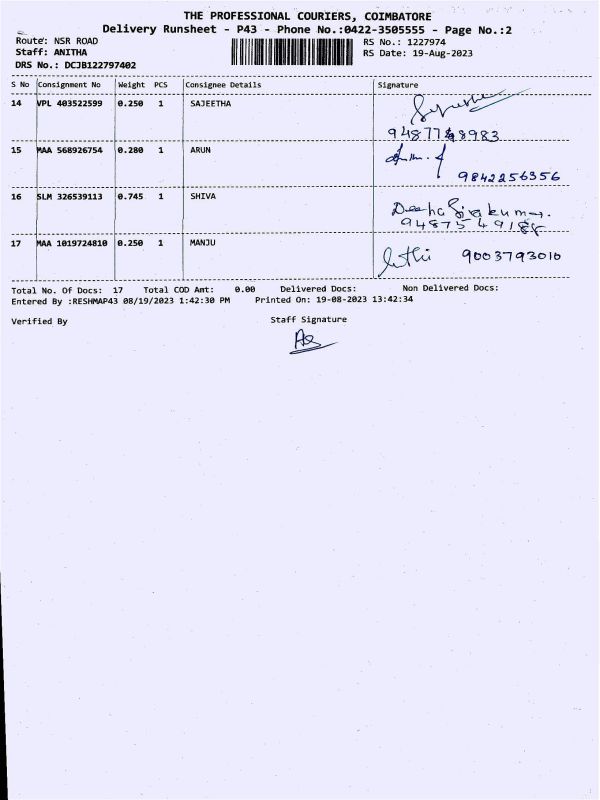 THE PROFESSIONAL COURIERS, COIMBATORE
Delivery Runsheet - P43 - Phone No.:0422-3505555 - Page No.:2
Route: NSR ROAD RS No.: 1227974
Staff: ANITHA RS Date: 19-Aug-2023
DRS No.: DCJB122797402
S No Consignment No Weight PCS Consignee Details Signature
14 VPL 403522599 0.250 1 SAJEETHA
15 MAA 568926754 0.280 1 ARUN
9842256356
16 SLM 326539113 0.745 1 SHIVA
9487549188
17 MAA 1019724810 0.250 1 MANJU 9003793010
Total No. Of Docs: 17 Total COD Amt: 0.00 Delivered Docs: Non Delivered Docs:
Entered By :RESHMAP43 08/19/2023 1:42:30 PM Printed On: 19-08-2023 13:42:34
Verified By Staff Signature